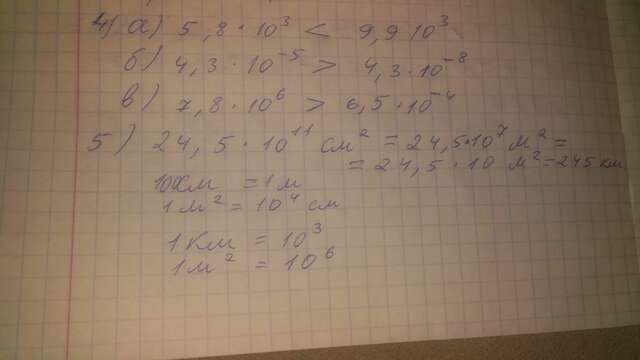 4) а) 5,8 · 10³ < 9,9 10³
б) 4,3 · 10⁻⁵ > 4,3 · 10⁻⁸
в) 7,8 · 10⁶ > 6,5 · 10⁻⁴
5) 24,5 · 10¹¹ см² = 24,5 · 10⁷ м² =
= 24,5 · 10 м² = 245 км
100см = 1 м
1 м² = 10⁴ см
1 км = 10³
1 м² = 10⁶